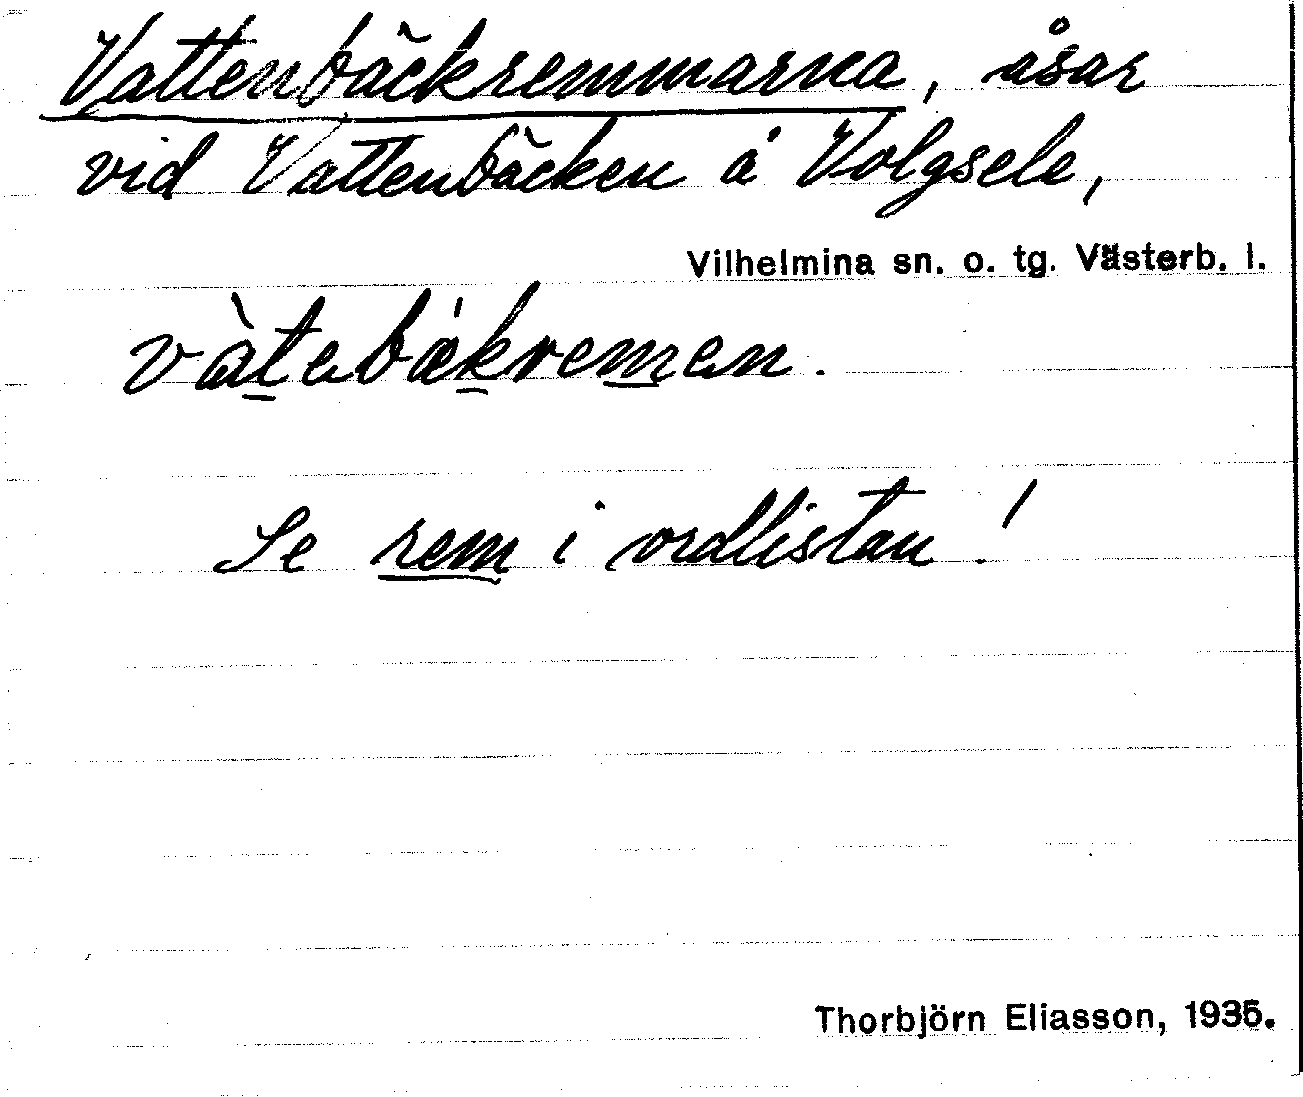 Vattenbäckremmarna, åsar
vid Vattenbäcken å Volgsele,
Vilhelmina sn. o. tg. Västerb. l.
vàtebákremen.
Se rem i ordlistan!
Thorbjörn Eliasson, 1935.